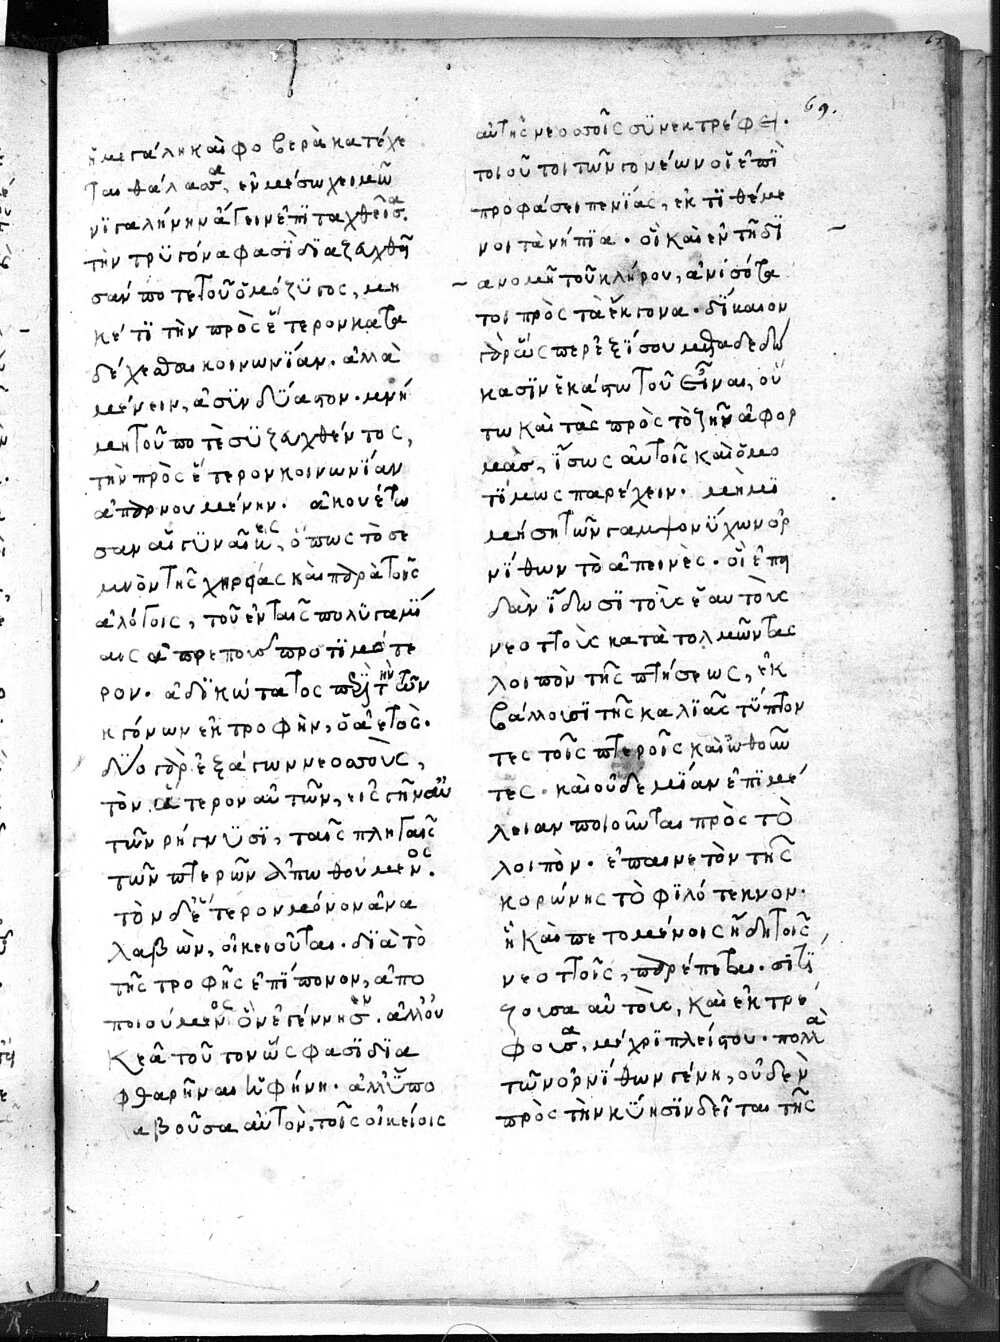 69.
ἡ μεγάλη καὶ φοβερὰ κατέχε
ται θάλασσα, ἐν μέσω χειμῶ
νι γαλήνην ἄγειν ἐπιταχθεῖσα.
τὴν τρυγόνα φασὶ διαζευχθεῖ
σάν ποτε τοῦ ὁμόζυγος, μη
κέτι τὴν πρὸς ἕτερον κατα
δέχεσθαι κοινωνίαν. ἀλλὰ
μένειν, ἀσυνδύαστον. μνή
μη τοῦ ποτὲ συζευχθέντος,
τὴν πρὸς ἕτερον κοινωνίαν
ἀπαρνουμένην. ἀκουέτω
σαν αἱ γυναῖκες, ὅπως τὸ σε
μνὸν τῆς χηρείας καὶ παρὰ τοῖς
ἀλόγοις, τοῦ ἐν ταῖς πολυγαμί
αις ἀπρεποῦς προτιμότε
ρον. ἀδικώτατος περὶ τὴν τῶν
ἐκγόνων ἐκτροφὴν, ὁ ἀετὸς.
δύο γὰρ ἐξάγων νεοσσοὺς,
τὸν ἕτερον αὐτῶν, εἰς γῆν αὐ
τῶν ῥήγνυσι, ταῖς πληγαῖς
τῶν πτερῶν ἀπωθούμενος.
τὸν δὲ ἕτερον μόνον ἀνα
λαβὼν, οἰκειοῦται. διὰ τὸ
τῆς τροφῆς ἐπίπονον, ἀπο
ποιούμενος ὃν ἐγέννησεν. ἀλλ' οὐκ
ἐᾶ τοῦτον ὥς φασι δια
φθαρῆναι ἡ φήνη. ἀλλ' ὑπο
λαβοῦσα αὐτὸν, τοῖς οἰκείοις
αὐτῆς νεοσσοῖς συνεκτρέφει.
τοιοῦτοι τῶν γονέων οἱ ἐπὶ
προφάσει πενίας, ἐκτιθέμε
νοι τὰ νήπια. οἳ καὶ ἐν τῇ δι
ανομῇ τοῦ κλήρου, ἀνισότα
τοι πρὸς τὰ ἔκγονα. δίκαιον
γὰρ ὥσπερ ἐξίσου μεταδεδώ
κασιν ἑκάστω τοῦ εἶναι, οὕ
τω καὶ τὰς πρὸς τὸ ζῆν ἀφορ
μὰς, ἴσως αὐτοῖς καὶ ὁμο
τίμως παρέχειν. μὴ μι
μήση τῶν γαμψονύχων ὀρ
νίθων τὸ ἀπεινὲς. οἳ ἐπει
δὰν ἴδωσι τοὺς ἑαυτοὺς
νεοττοὺς κατατολμῶντας
λοιπὸν τῆς πτήσεως, ἐκ
βάλλουσι τῆς καλιᾶς τύπτον
τες τοῖς πτεροῖς καὶ ὠθοῦν
τες. καὶ οὐδεμίαν ἐπιμέ
λειαν ποιοῦνται πρὸς τὸ
λοιπὸν. ἐπαινετὸν τῆς
κορώνης τὸ φιλότεκνον.
ἣ καὶ πετομένοις ἤδη τοῖς
νεοττοῖς, παρέπεται. σιτί
ζουσα αὐτοὺς, καὶ ἐκτρέ
φουσα, μέχρι πλείστου. πολλὰ
τῶν ὀρνίθων γένη, οὐδὲν
πρὸς τὴν κύησιν δεῖται τῆς